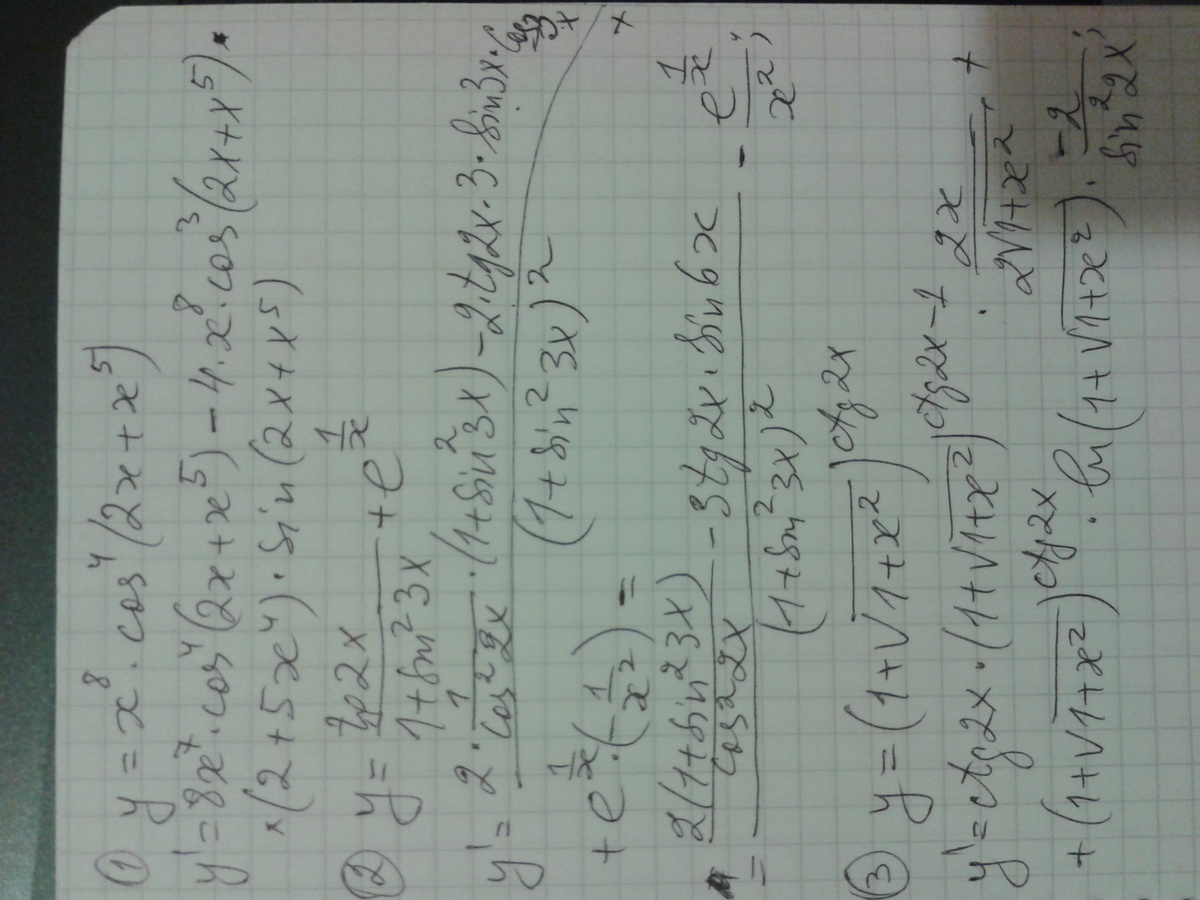 ① y = x⁸ · cos⁴(2x + x⁵)
y' = 8x⁷ · cos⁴(2x + x⁵) − 4 · x⁸ · cos³(2x + x⁵) ·
× (2 + 5x⁴) · sin(2x + x⁵)
② y = tg2x / (1 + sin²3x) + e^(1/x)
y' = (2 · 1/cos²2x · (1 + sin²3x) − 2 · tg2x · 3 · sin3x · cos3x) / (1 + sin²3x)² +
+ e^(1/x) · (−1/x²) =
= (2(1 + sin²3x)/cos²2x − 3tg2x · sin6x) / (1 + sin²3x)² − e^(1/x)/x² ;
③ y = (1 + √(1 + x²))^(ctg2x)
y' = ctg2x · (1 + √(1 + x²))^(ctg2x − 1) · 2x / (2√(1 + x²)) +
+ (1 + √(1 + x²))^(ctg2x) · ln(1 + √(1 + x²)) · −2/sin²2x ;